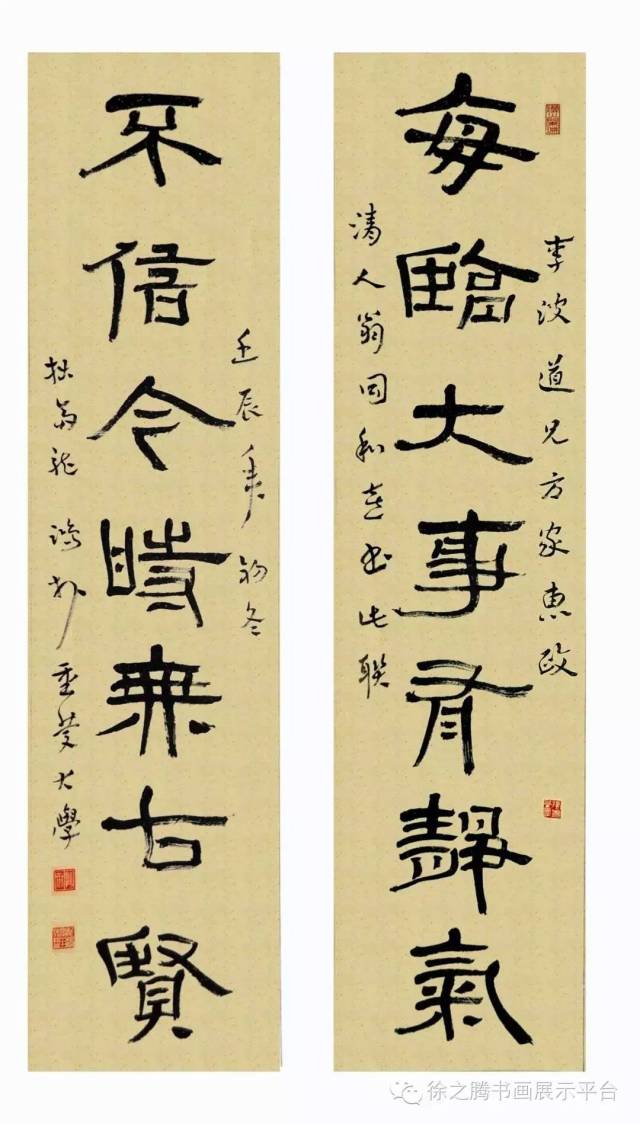 李波道兄方家惠政
每臨大事有靜氣
清人翁同和喜书此联
壬辰年初冬
不信今時無古賢
拙翁龙鸿於重庆大學
徐之腾书画展示平台